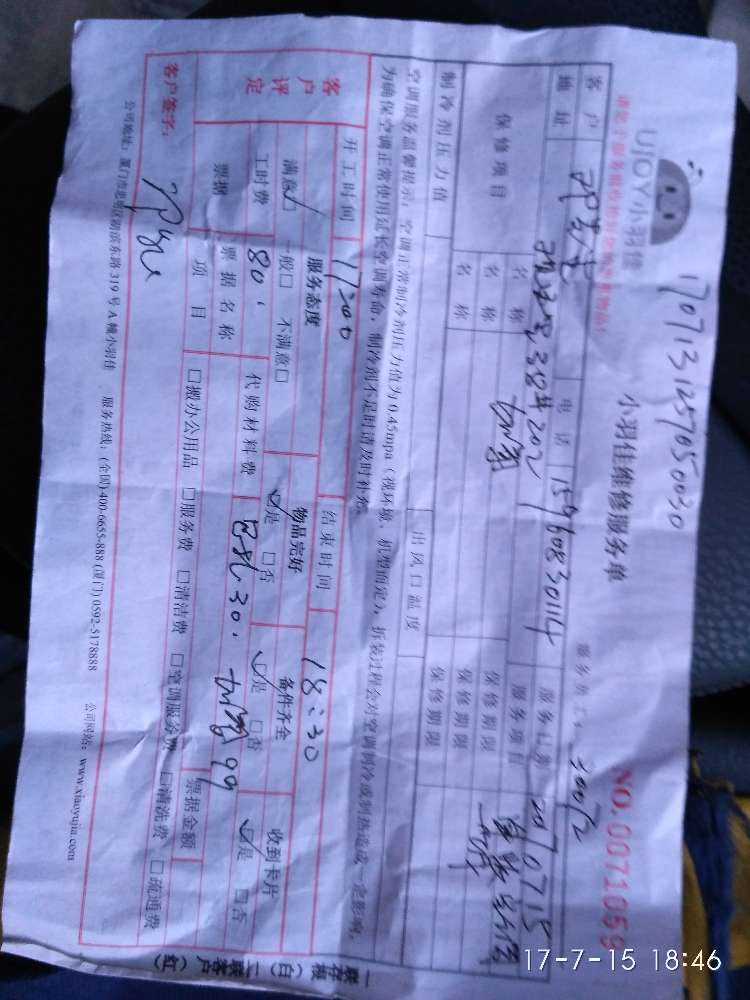 17071312570500030
UJOY小羽佳
小羽佳维修服务单
NO.0071059
客户
电话 15960830114
服务日期 20170715
地址
服务项目
保修项目
名称 加氟
保修期限
名称
保修期限
名称
保修期限
制冷剂压力值
出风口温度
空调服务温馨提示：空调正常制冷剂压力值为0.45mpa（视环境、机型而定），拆装过程会对空调制冷或制热造成一定影响，
为确保空调正常使用延长空调寿命，制冷剂不足时请及时补充。
开工时间 17:00
结束时间 18:30
客户评定
服务态度
物品完好
备件齐全
收到卡片
满意☑ 一般□ 不满意□
☑是 □否
☑是 □否
☑是 □否
工时费 80.
代购材料费 30. 加氟99
票据
票据名称
票据金额
项目
□搬办公用品 □服务费 □清洁费 □空调服务费 □清洗费 □疏通费
客户签字：
公司地址：厦门市思明区湖滨东路319号A幢小羽佳
服务热线：(全国)400-6655-888 (厦门) 0592-5178888
公司网站：www.xiaoyujia.com
一联存根（白）二联客户（红）
17-7-15 18:46